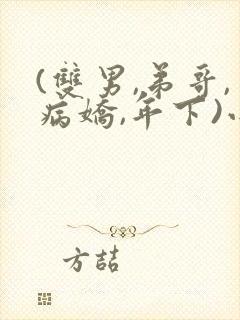 (雙男,弟哥,
病嬌,年下)
方喆